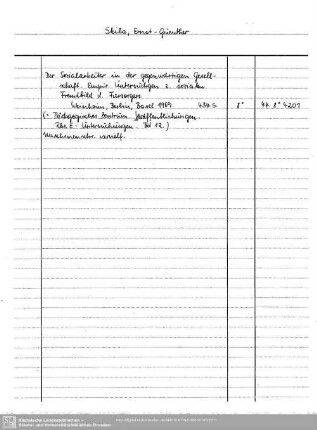 Skiba, Ernst-Günther
Der Sozialarbeiter in der gegenwärtigen Gesell-
schaft. Empir. Untersuchgen z. sozialen
Fremdbild d. Fürsorgers.
Weinheim, Berlin, Basel 1969. 434 S. 8° 44. 8° 4207
(= Pädagogisches Zentrum. Veröffentlichungen.
Rhe E. Untersuchungen. Bd 12.)
Maschinenschr. vervielf.
Sächsische Landesbibliothek -
Staats- und Universitätsbibliothek Dresden